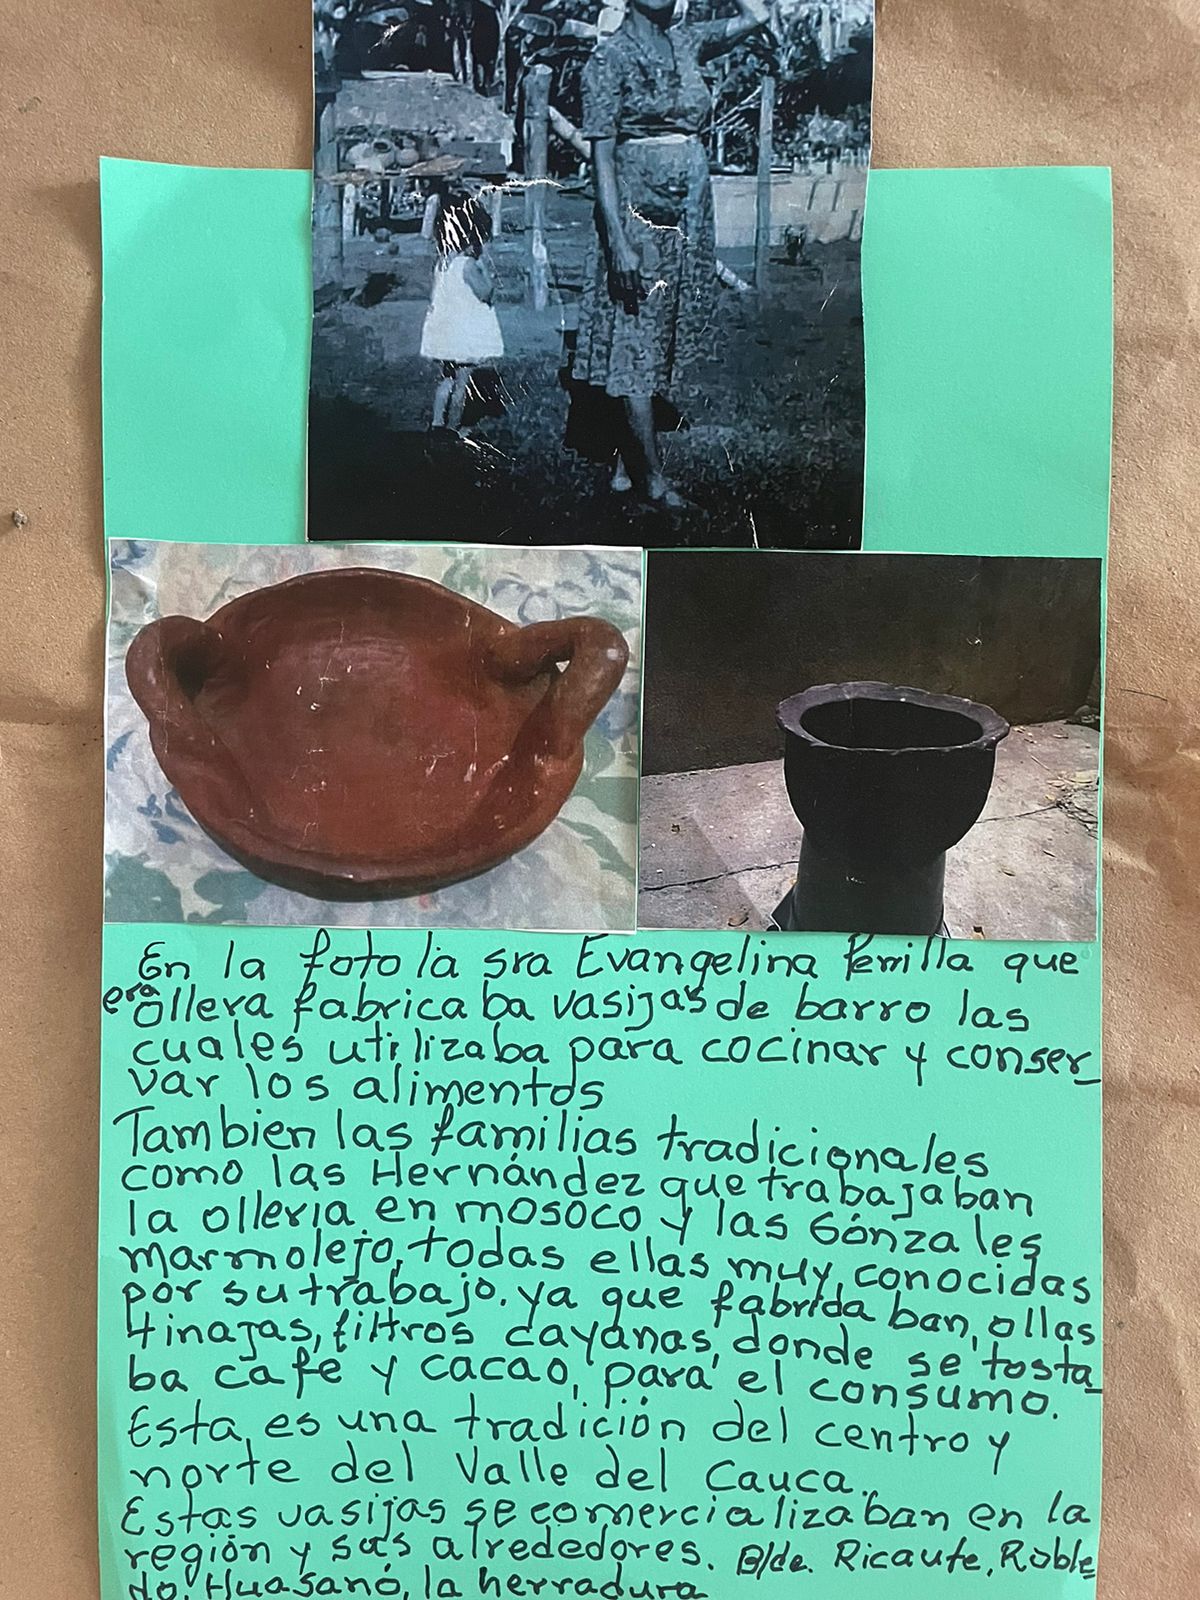 En la foto la sra Evangelina Perrilla que
era ollera fabricaba vasijas de barro las
cuales utilizaba para cocinar y conser_
var los alimentos
Tambien las familias tradicionales
como las Hernández que trabajaban
la olleria en mosoco y las Gónzales
marmolejo, todas ellas muy conocidas
por su trabajo. ya que fabrida ban, ollas
tinajas, filtros cayanas, donde se tosta_
ba café y cacao, para el consumo.
Esta es una tradición del centro y
norte del Valle del Cauca.
Estas vasijas se comercializaban en la
región y sus alrededores. B/de. Ricaute, Roble_
do, Huasanó, la herradura